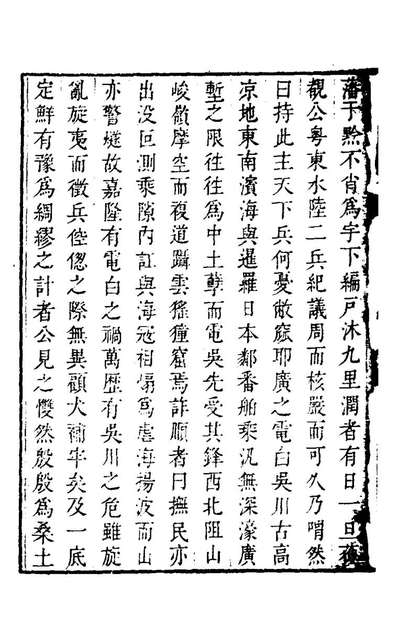 藩于黔不肖爲宇下編戸沐九里潤者有日一旦獲
覩公粤東水陸二兵紀議周而核嚴而可久乃喟然
曰持此主天下兵何憂敵窺耶廣之電白吳川古高
凉地東南濱海與暹羅日本鄰番舶乘汎無深濠廣
塹之限往往爲中土孽而電吳先受其鋒西北阻山
峻嶺摩空而複道躡雲猺獞窟焉詐順者曰撫民亦
出没叵測乘隙内訌與海冦相煽爲虐海揚波而山
亦警燧故嘉隆有電白之禍萬歷有吳川之危雖旋
亂旋夷而徵兵倥偬之際無異顧犬補牢矣及一底
定鮮有豫爲綢繆之計者公見之愯然殷殷爲桑土